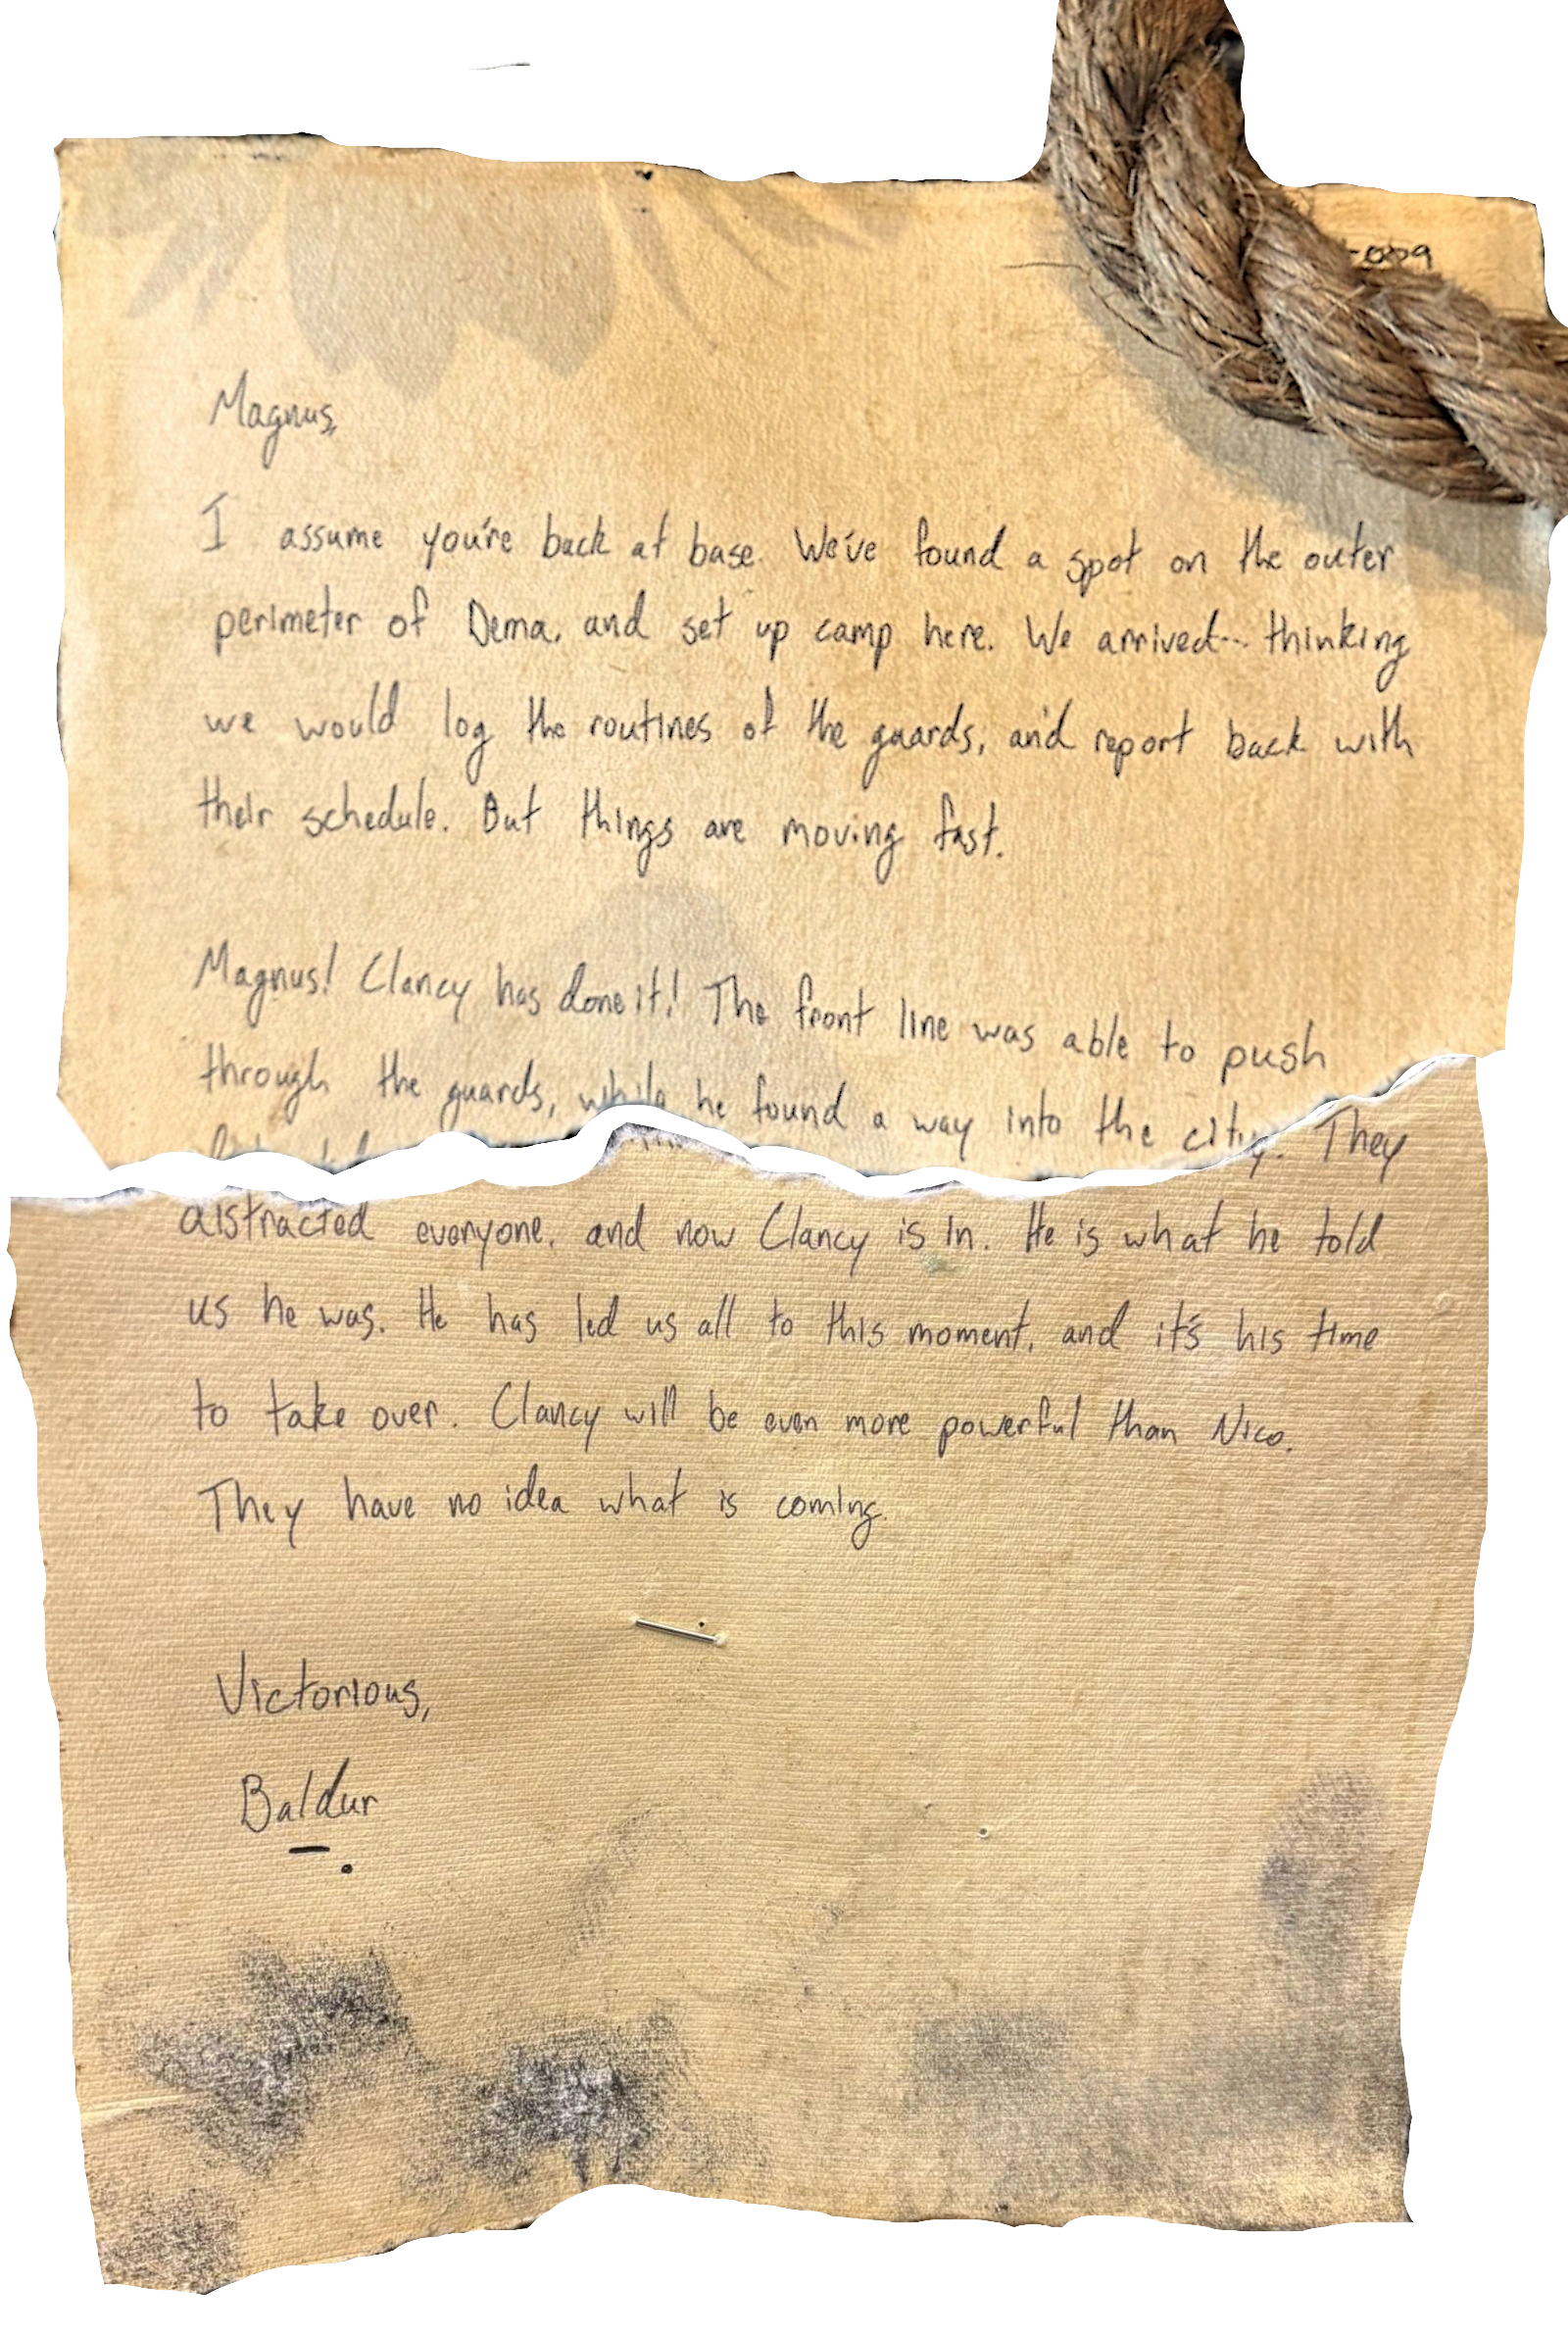 -009
Magnus,
I assume you're back at base. We've found a spot on the outer
perimeter of Dema, and set up camp here. We arrived... thinking
we would log the routines of the guards, and report back with
their schedule. But things are moving fast.
Magnus! Clancy has done it! The front line was able to push
through the guards, while he found a way into the city. They
distracted everyone, and now Clancy is in. He is what he told
us he was. He has led us all to this moment, and it's his time
to take over. Clancy will be even more powerful than Nico.
They have no idea what is coming.
Victorious,
Baldur